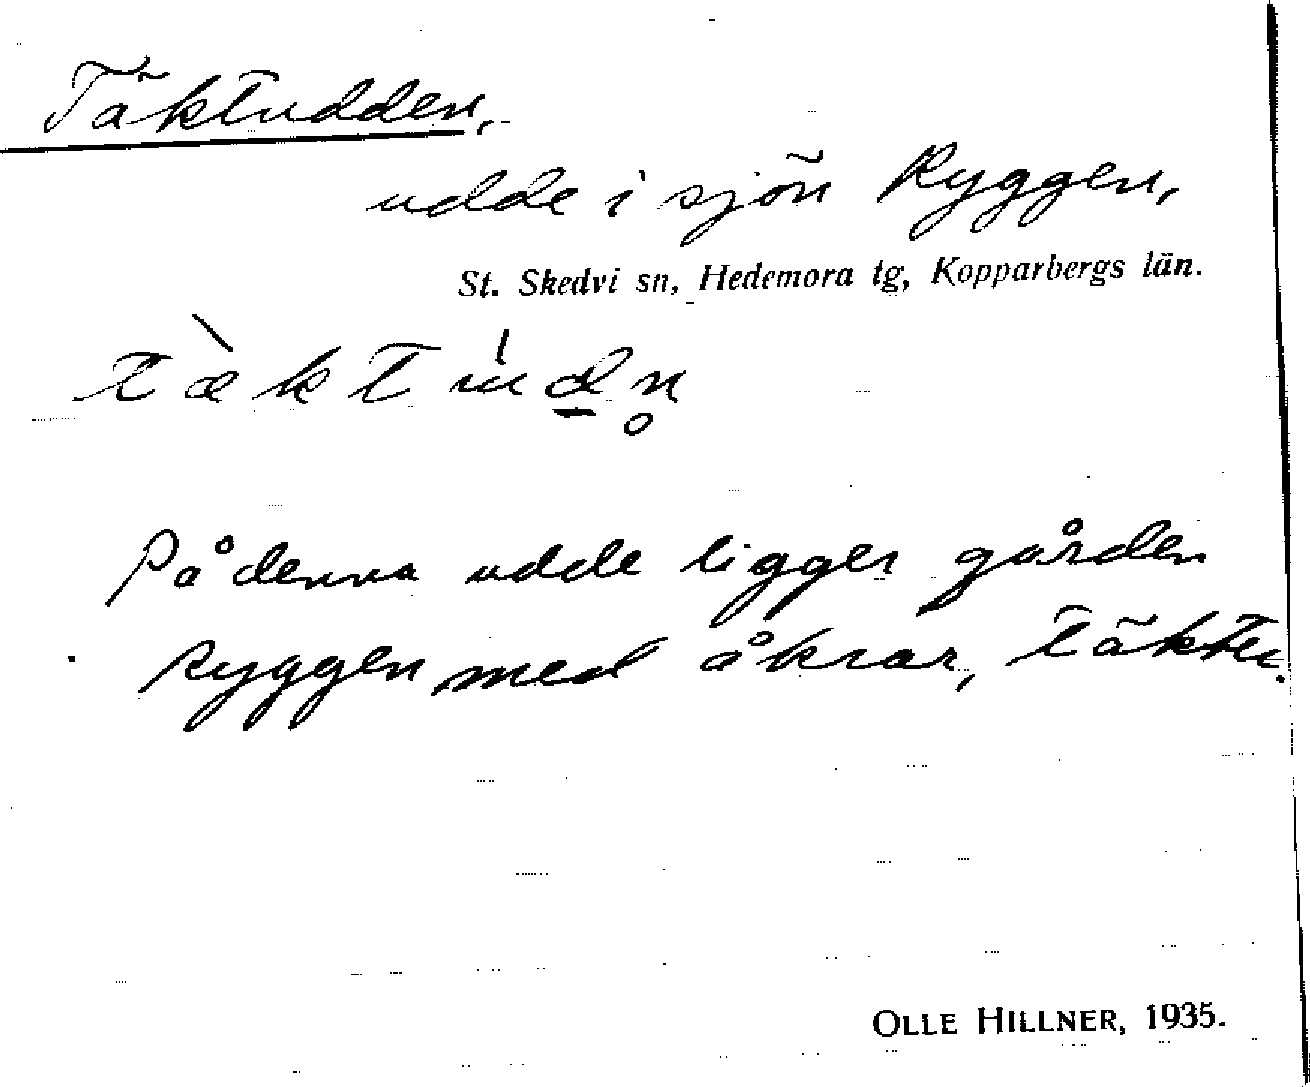 Täktudden,
udde i sjön Ryggen,
St. Skedvi sn, Hedemora tg, Kopparbergs län.
tæ̀ktúd̲n̥
På denna udde ligger gården
Ryggen med åkrar, täkter.
OLLE HILLNER, 1935.